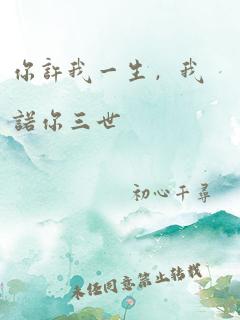 你許我一生，我
諾你三世
初心千尋
未经同意禁止转载